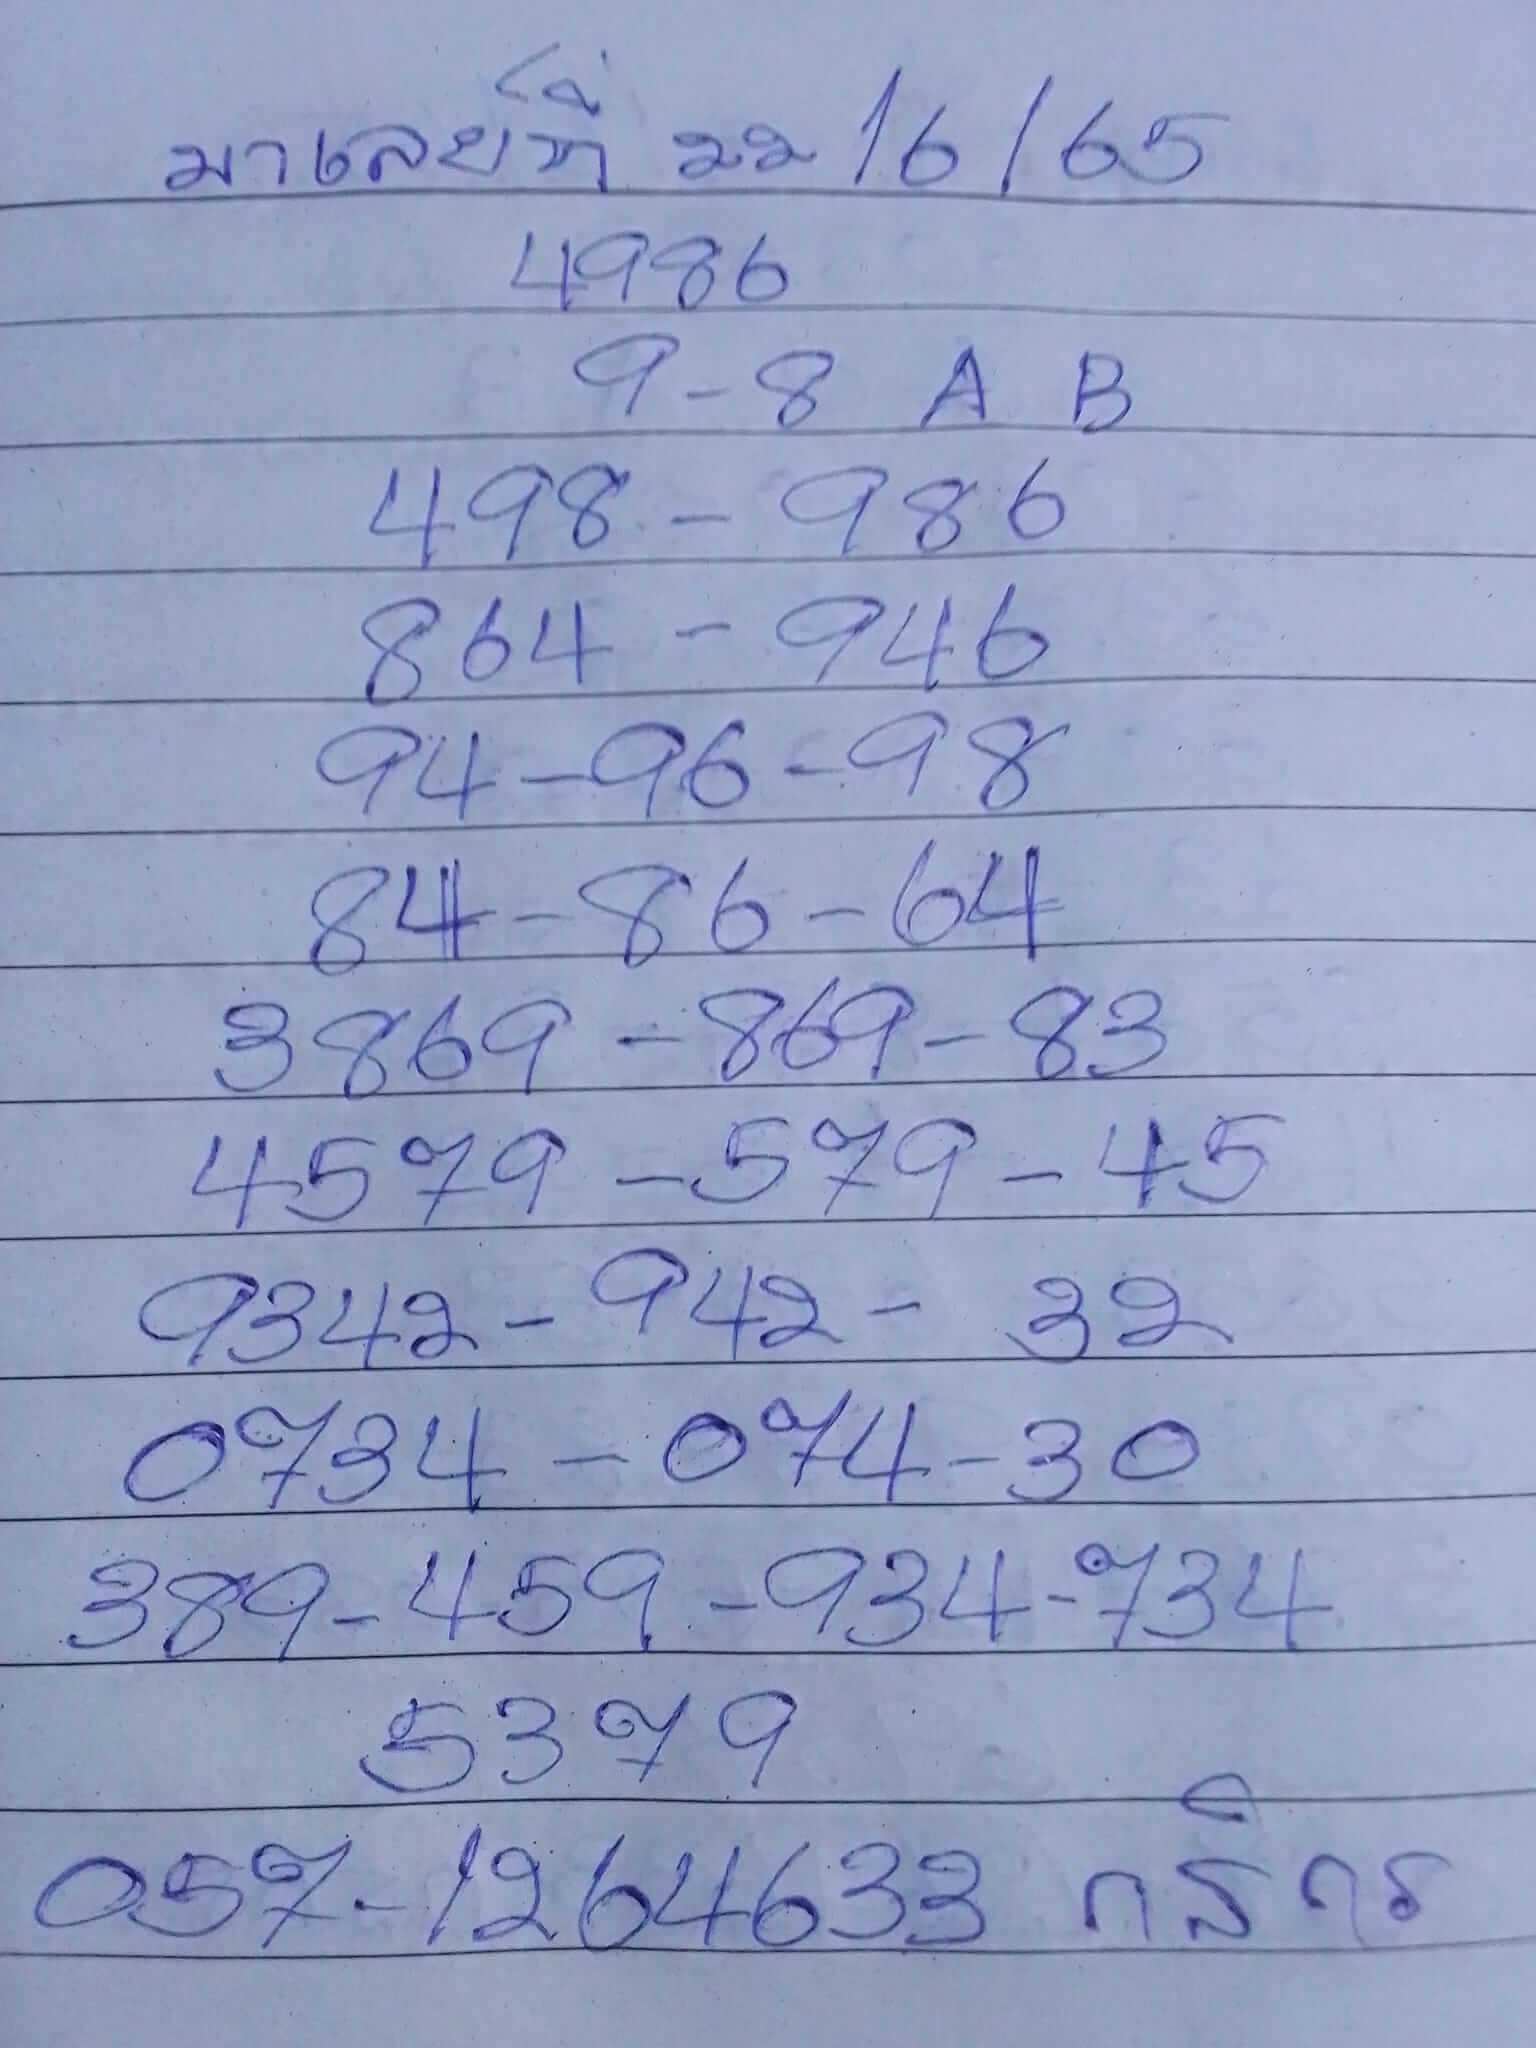 มาเลย์ที่ 22/6/65
4986
9-8 A B
498-986
864-946
94-96-98
84-86-64
3869-869-83
4579-579-45
9342-942-32
0734-074-30
389-459-934-734
5379
057-1264633 กสิกร